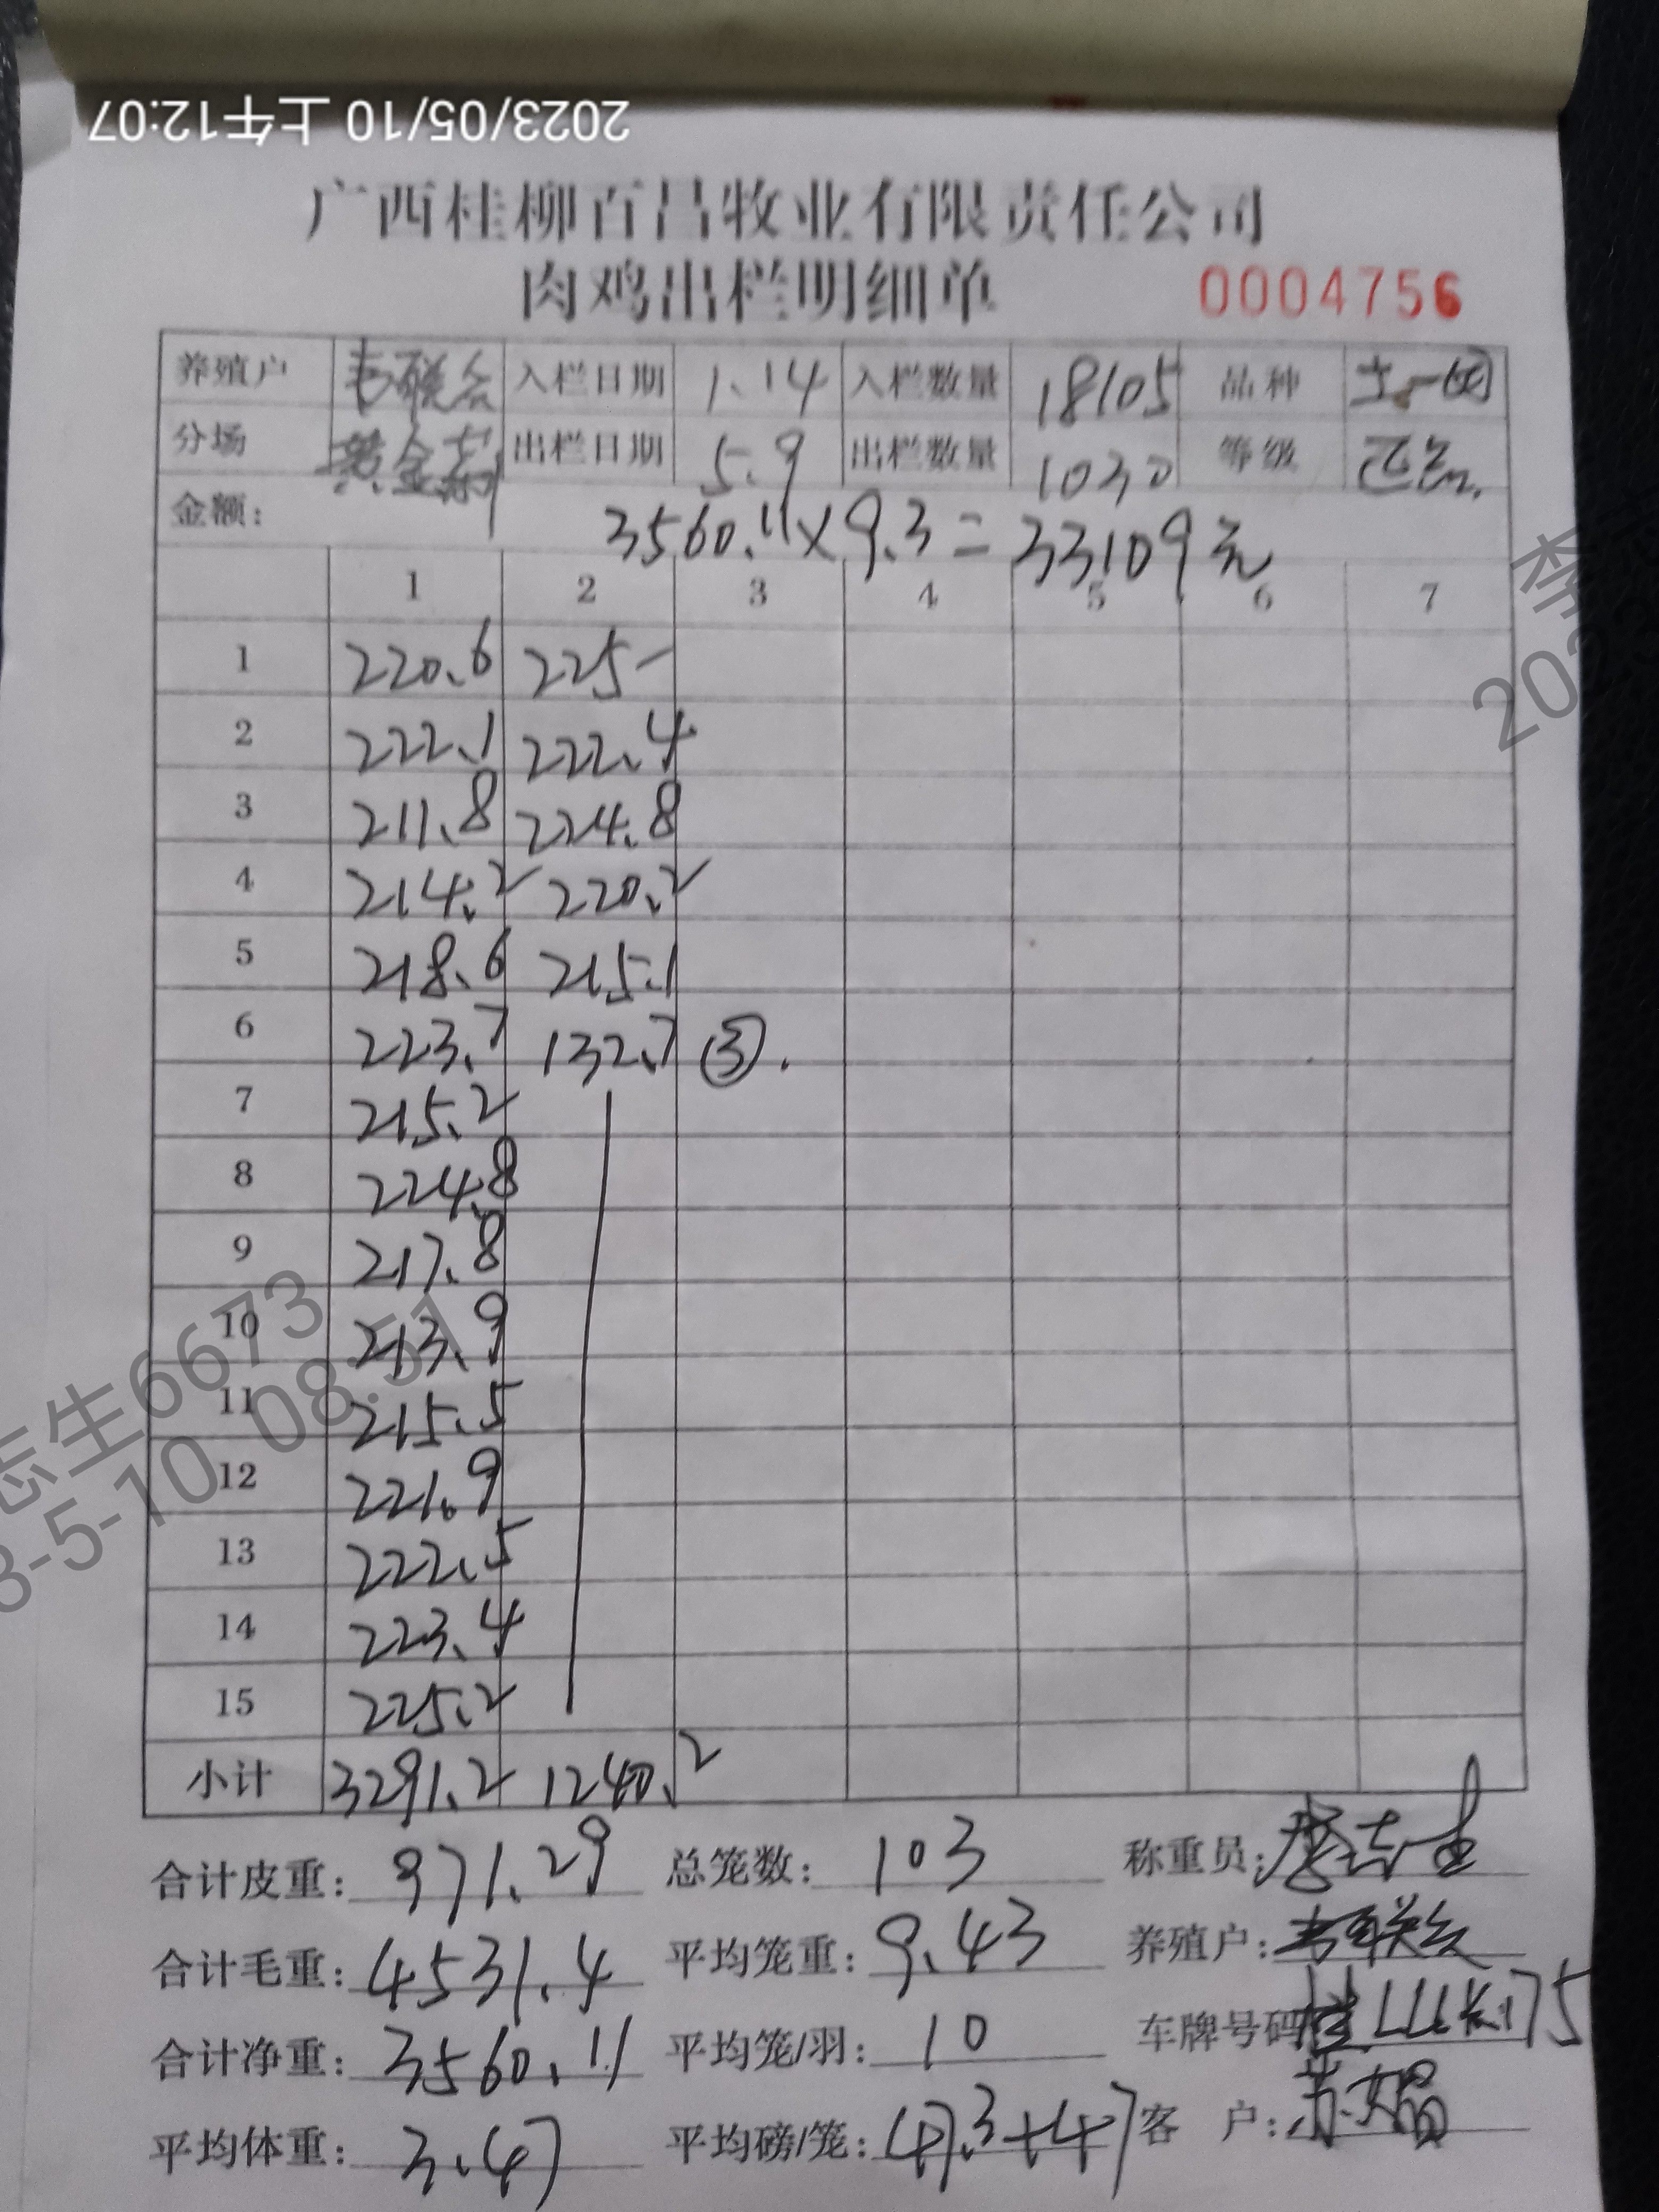 2023/05/10 上午12:07
广西桂柳百昌牧业有限责任公司
肉鸡出栏明细单 0004756
养殖户 韦联会 入栏日期 1.14 入栏数量 18105 品种 土一
分场 黄金 出栏日期 5.9 出栏数量 1030 等级
金额: 3560.11×9.3=33109元
1 2 3 4 5 6 7
1 220.6 225-
2 222.1 222.4
3 211.8 224.8
4 214.2 220.2
5 218.6 215.1
6 223.7 132.7 ③.
7 215.2
8 224.8
9 217.8
10 213.9
11 215.5
12 221.9
13 222.5
14 223.4
15 225.2
小计 3291.2 1240.2
合计皮重: 971.29 总笼数: 103 称重员: 志生
合计毛重: 4531.4 平均笼重: 9.43 养殖户: 韦联会
合计净重: 3560.11 平均笼/羽: 10 车牌号码
平均体重: 3.47 平均磅/笼: 47.3+47 客 户:
志生6673
3-5-10 08:51
20